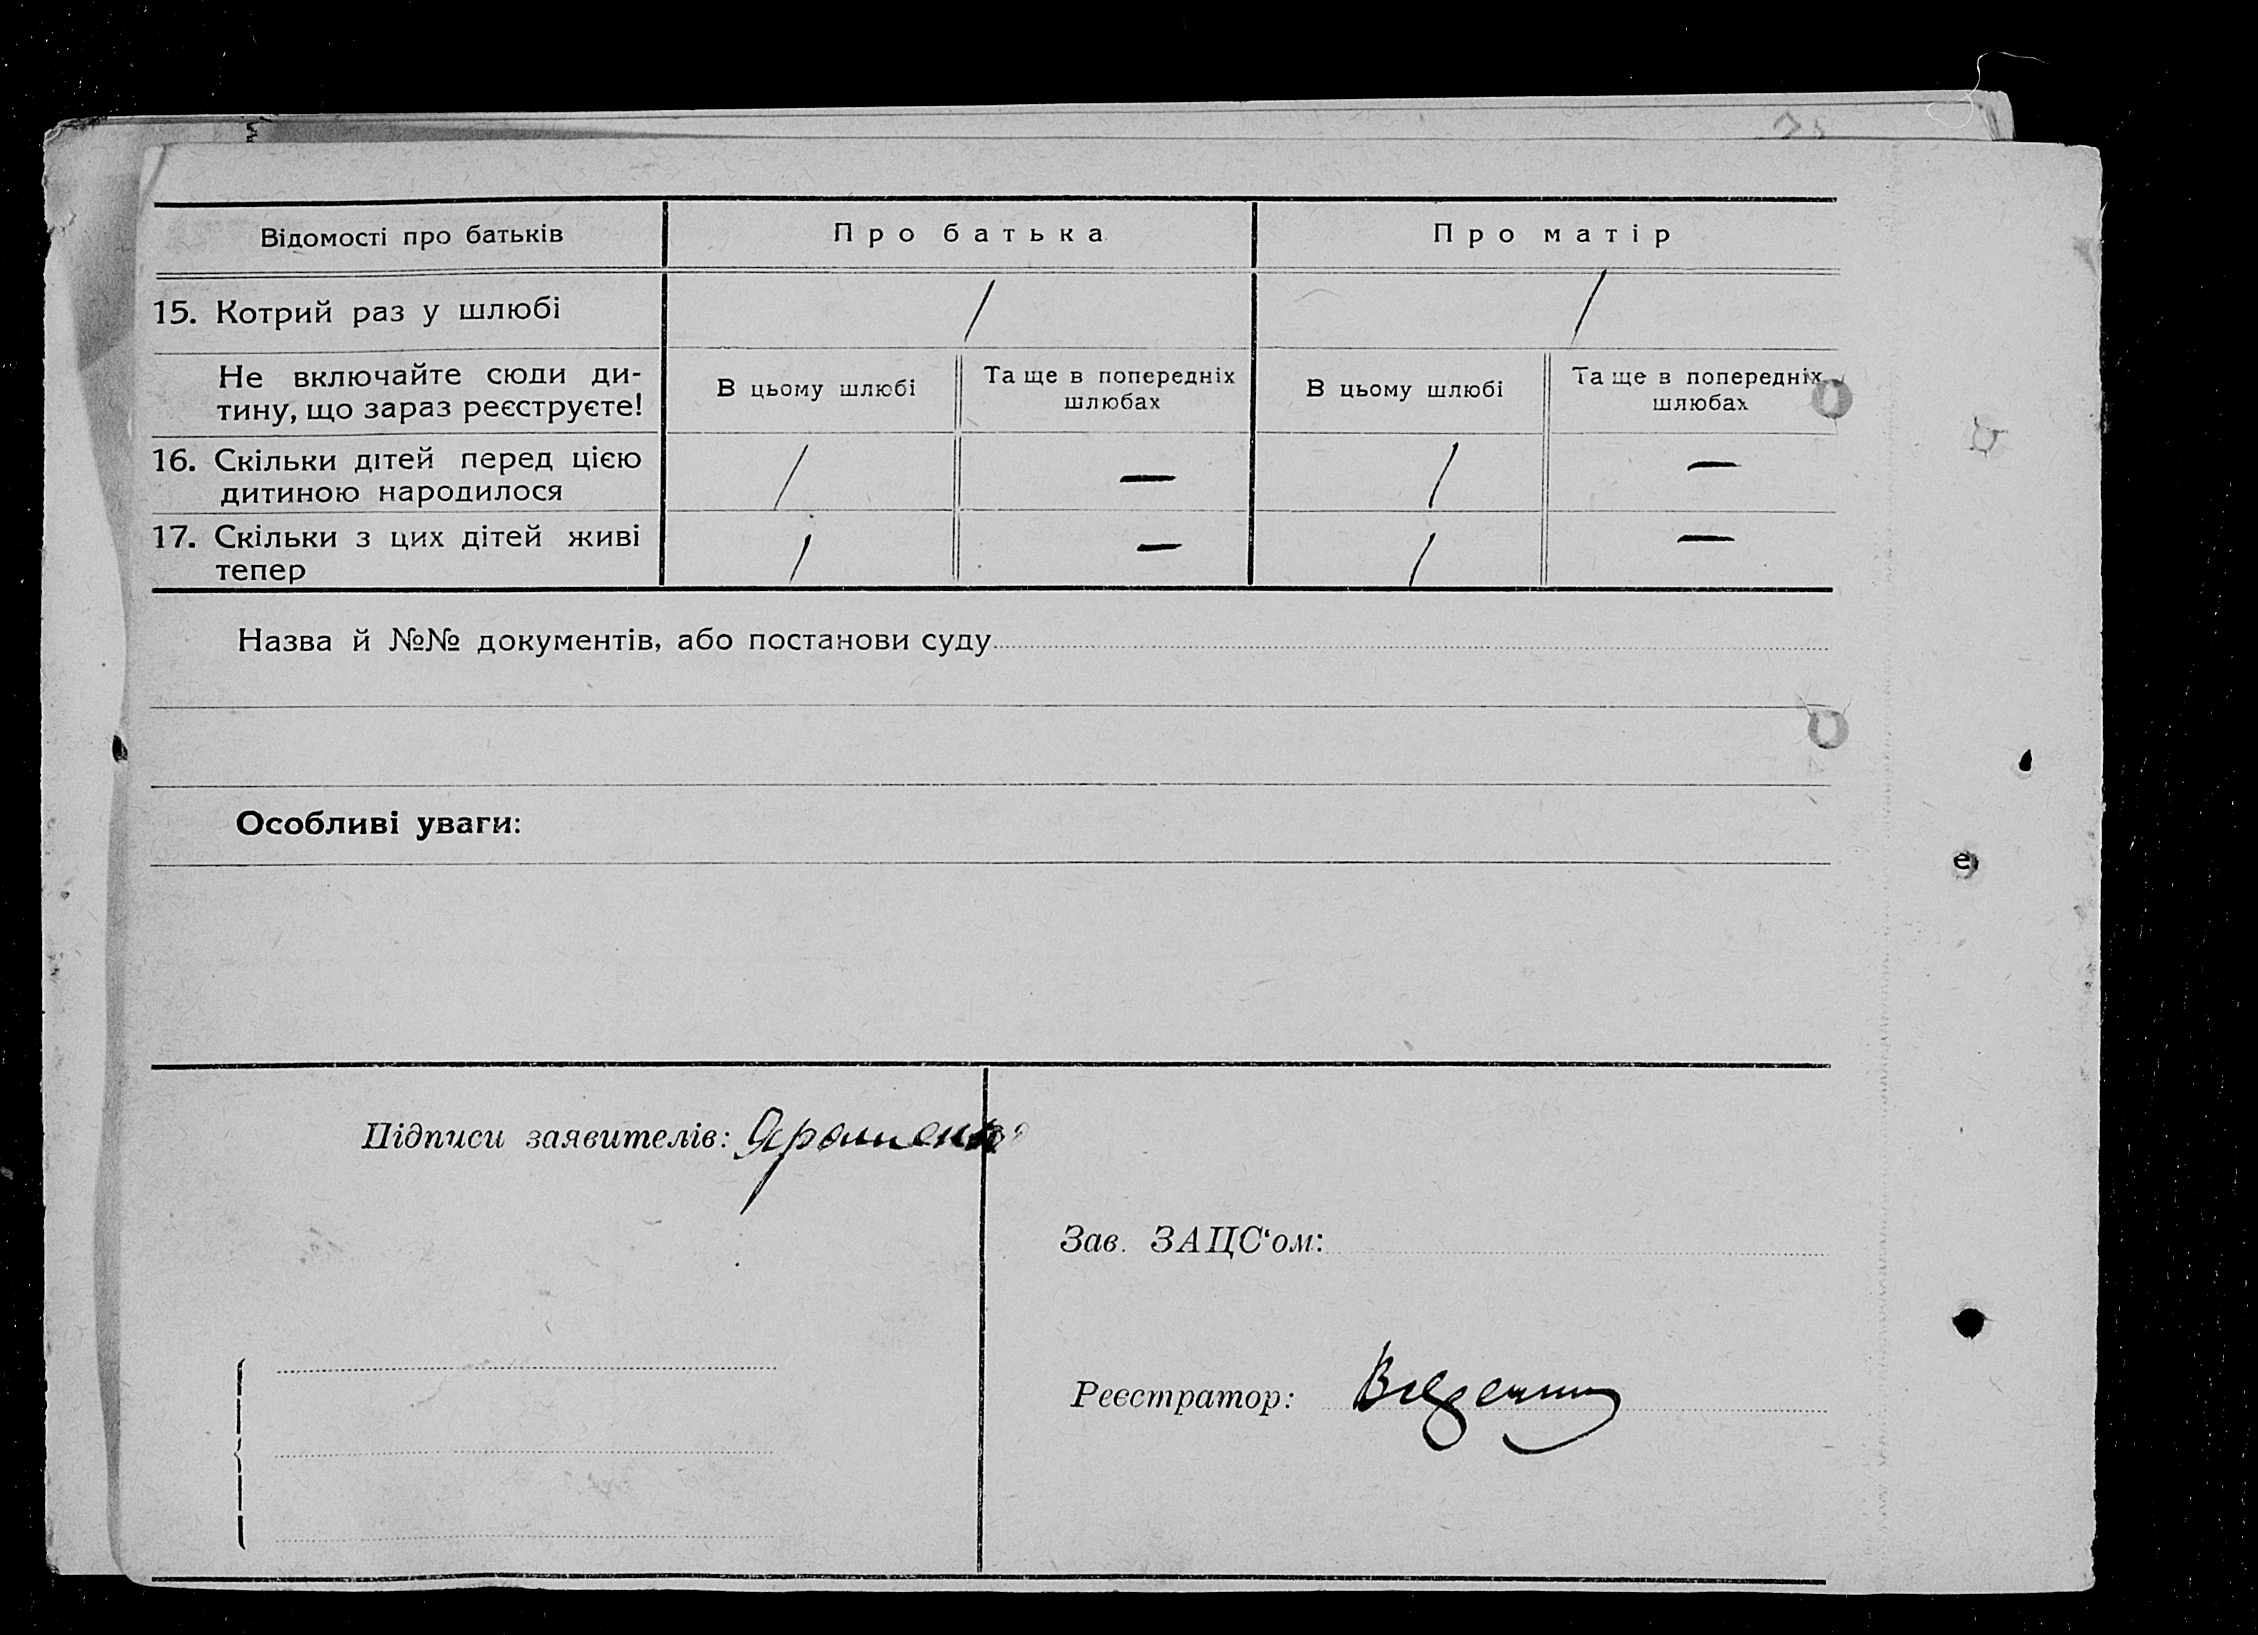 Відомості про батьків Про батька Про матір
15. Котрий раз у шлюбі / /
Не включайте сюди ди-
тину, що зараз реєструєте!
В цьому шлюбі
Та ще в попередніх
шлюбах
В цьому шлюбі
Та ще в попередніх
шлюбах
16. Скільки дітей перед цією
дитиною народилося
/ — / —
17. Скільки з цих дітей живі
тепер
/ — / —
Назва й №№ документів, або постанови суду
Особливі уваги:
Підписи заявителів:
Зав. ЗАЦС‘ом:
Реєстратор: